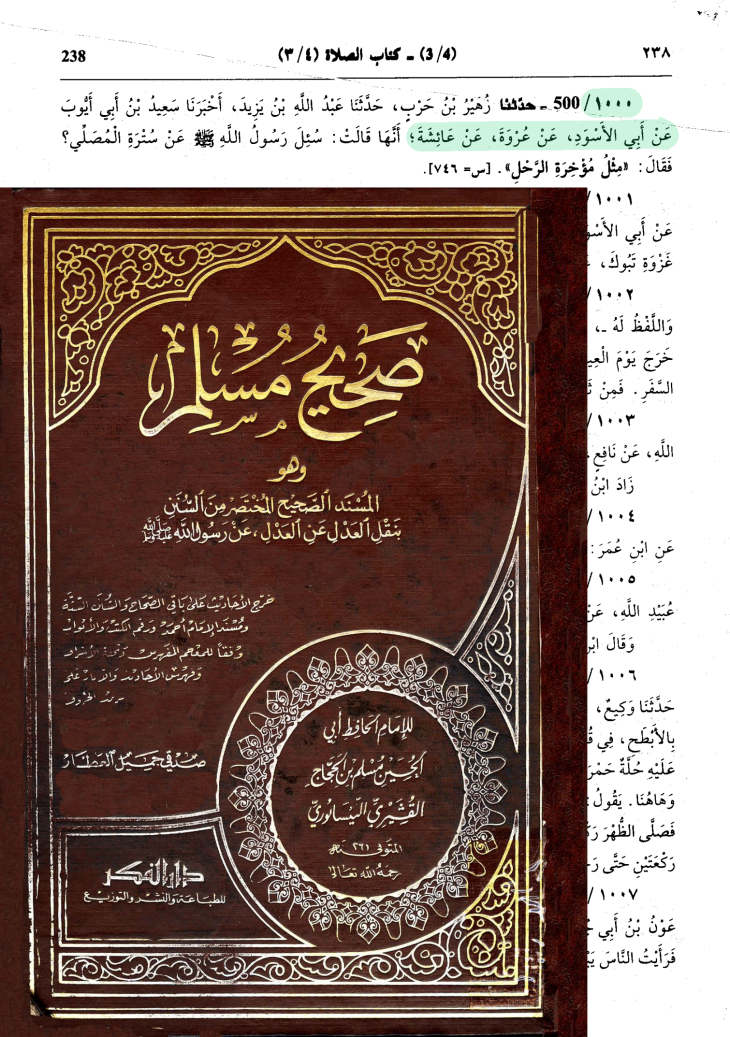 ٢٣٨ (3/4) ـ كتاب الصلاة (٣/٤) 238
١٠٠٠/ 500 ـ حدّثنا زُهَيْرُ بْنُ حَرْبٍ، حَدَّثَنَا عَبْدُ اللَّهِ بْنُ يَزِيدَ، أَخْبَرَنَا سَعِيدُ بْنُ أَبِي أَيُّوبَ
عَنْ أَبِي الأَسْوَدِ، عَنْ عُرْوَةَ، عَنْ عَائِشَةَ؛ أَنَّهَا قَالَتْ: سُئِلَ رَسُولُ اللَّهِ ﷺ عَنْ سُتْرَةِ الْمُصَلِّي؟
فَقَالَ: «مِثْلُ مُؤْخِرَةِ الرَّحْلِ». [س= ٧٤٦].
١٠٠١/
عَنْ أَبِي الأَسْوَ
غَزْوَةِ تَبُوكَ،
١٠٠٢/
وَاللَّفْظُ لَهُ ـ،
خَرَجَ يَوْمَ الْعِيـ
السَّفَرِ. فَمِنْ
١٠٠٣/
اللَّهِ، عَنْ نَافِعٍ
زَادَ ابْنُ
١٠٠٤/
عَنِ ابْنِ عُمَرَ:
١٠٠٥/
عُبَيْدِ اللَّهِ، عَنْ
وَقَالَ ابْ
١٠٠٦/
حَدَّثَنَا وَكِيعٌ،
بِالأَبْطَحِ، فِي
عَلَيْهِ حُلَّةٌ حَمْرَ
وَهَاهُنَا. يَقُولُ:
فَصَلَّى الظُّهْرَ رَكْ
رَكْعَتَيْنِ حَتَّى رَ
١٠٠٧/
عَوْنُ بْنُ أَبِي
فَرَأَيْتُ النَّاسَ
صَحِيحُ مُسْلِم
وهو
المُسْنَد الصَّحِيح المُخْتَصَر مِنَ السُّنَنِ
بِنَقْلِ العَدْلِ عَنِ العَدْلِ، عَنْ رَسُولِ اللَّه ﷺ
خرج الأحاديث على باقي الصحاح والسنن الستة
ومسند الإمام أحمد ورقم الكتب والأبواب
وفقاً للمعجم المفهرس وتحفة الأشراف
صدقي جميل العطار
للإمام الحافظ أبي
الحسين مسلم بن الحجاج
القشيري النيسابوري
المتوفى ٢٦١ هـ
رحمه الله تعالى
دار الفكر
للطباعة والنشر والتوزيع